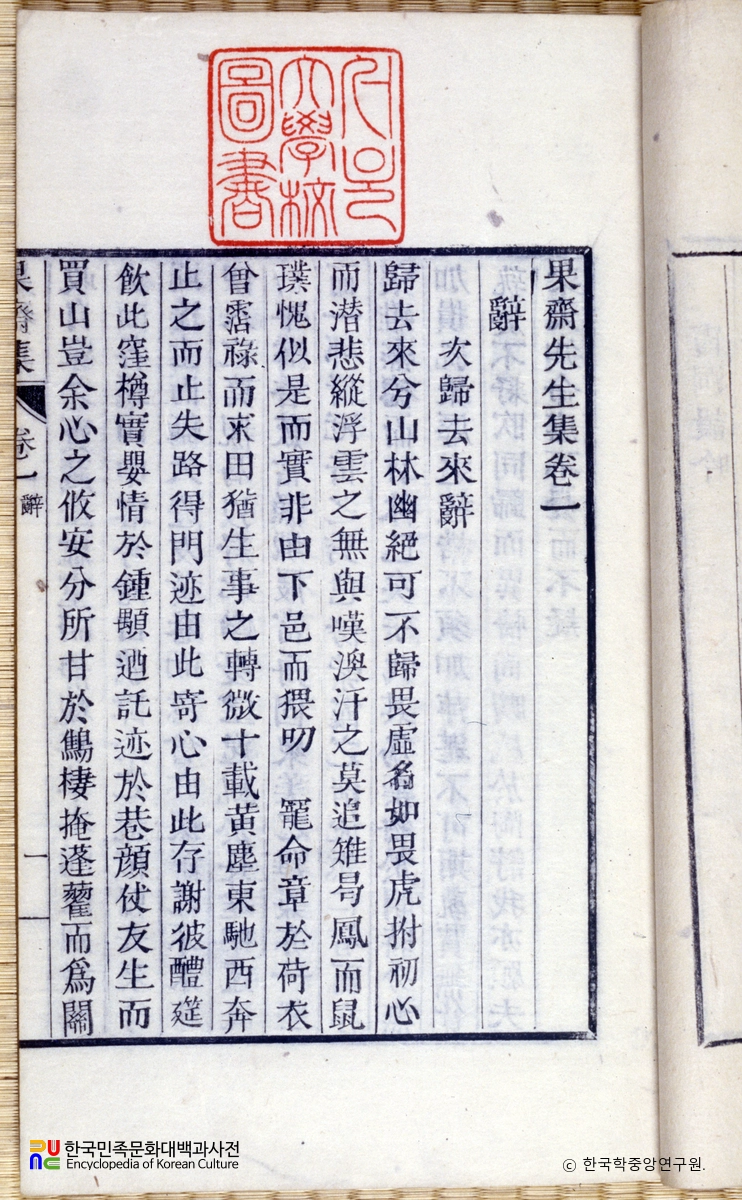 果齋先生集卷一
辭
次歸去來辭
歸去來兮山林幽絕可不歸畏虛名如畏虎拊初心
而潛悲縱浮雲之無與嘆渙汗之莫追雉曷鳳而鼠
璞愧似是而實非由下邑而猥叨 寵命章於荷衣
曾霑祿而求田猶生事之轉微十載黃塵東馳西奔
止之而止失路得門迹由此寄心由此存謝彼醴筵
飮此窪樽實嬰情於鍾顒迺託迹於巷顔仗友生而
買山豈余心之攸安分所甘於鷦棲掩蓬藋而爲關
果齋集
卷一
辭
一
大學校
圖書
한국민족문화대백과사전
Encyclopedia of Korean Culture
ⓒ 한국학중앙연구원.